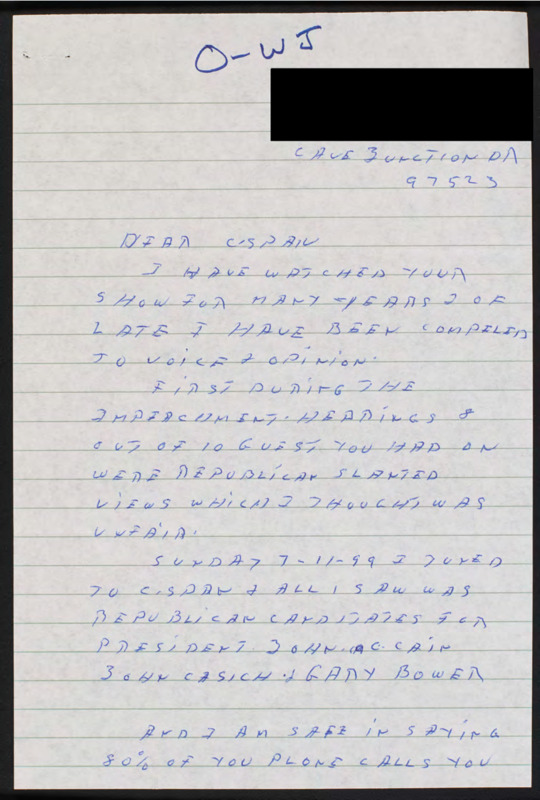 O-WJ
CAVE JUNCTION OR
97523
DEAR CSPAN
I HAVE WATCHED YOUR
SHOW FOR MANY YEARS & OF
LATE I HAVE BEEN COMPELED
TO VOICE & OPINION.
FIRST DURING THE
IMPERCHMENT. HEARINGS 8
OUT OF 10 GUEST YOU HAD ON
WERE REPUBLICAN SLANTED
VIEWS WHICH I THOUGHT WAS
UNFAIR.
SUNDAY 7-11-99 I TUNED
TO CSPAN & ALL I SAW WAS
REPUBLICAN CANDITATES FOR
PRESIDENT. JOHN. MC.CAIN
JOHN CASICH & GARY BOWER
AND I AM SAFE IN SAYING
80% OF YOU PLONE CALLS YOU